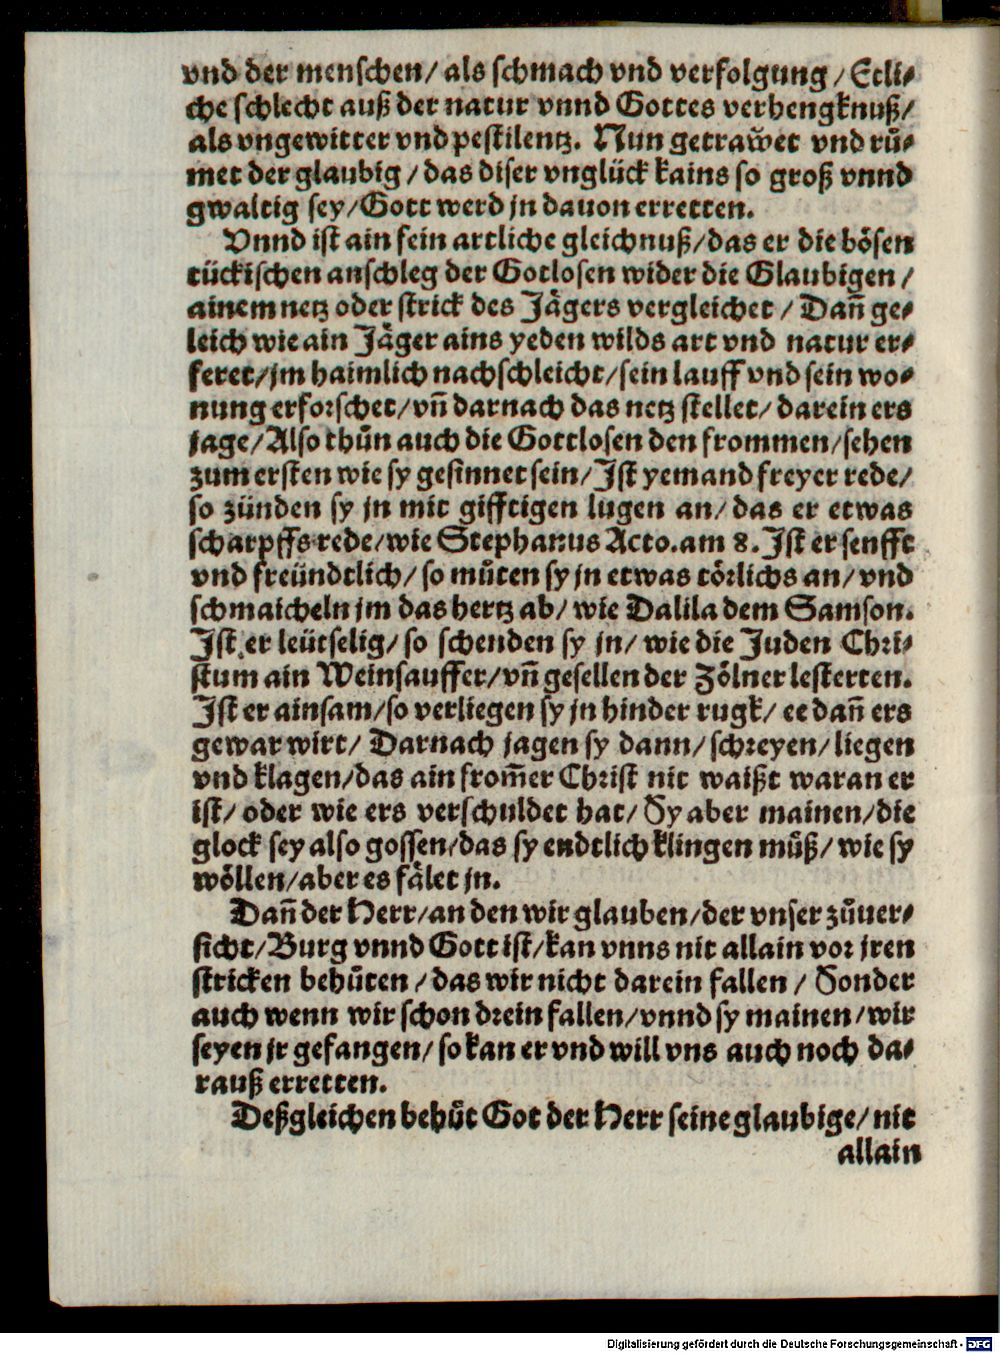 vnd der menschen/ als schmach vnd verfolgung /Etli⸗
che schlecht auß der natur vnnd Gottes verhengknuß/
als vngewitter vnd pestilentz. Nun getrawͤet vnd ruͦ⸗
met der glaubig /das diser vnglück kains so groß vnnd
gwaltig sey/Gott werd jn dauon erretten.
Vnnd ist ain fein artliche gleichnuß/das er die bösen
tückischen anschleg der Gotlosen wider die Glaubigen /
ainem netz oder strick des Jägers vergleichet / Dañ ge⸗
leich wie ain Jäger ains yeden wilds art vnd natur er⸗
feret/jm haimlich nachschleicht/sein lauff vnd sein wo⸗
nung erforschet/vñ darnach das netz stellet/ darein ers
jage/Also thuͦn auch die Gottlosen den frommen/sehen
zum ersten wie sy gesinnet sein/Jst yemand freyer rede/
so zünden sy jn mit gifftigen lugen an/das er etwas
scharpffs rede/wie Stephanus Acto.am 8.Jst er senfft
vnd freündtlich/so muͦten sy jn etwas törlichs an/vnd
schmaicheln jm das hertz ab/ wie Dalila dem Samson.
Jst er leütselig/so schenden sy jn/ wie die Juden Chri⸗
stum ain Weinsauffer/vñ gesellen der Zölner lesterten.
Jst er ainsam/so verliegen sy jn hinder rugk/ ee dañ ers
gewar wirt/ Darnach jagen sy dann/schreyen/liegen
vnd klagen/das ain from̃er Christ nit waißt waran er
ist/oder wie ers verschuldet hat/Sy aber mainen/die
glock sey also gossen/das sy endtlich klingen muͦß/wie sy
wöllen/aber es fälet jn.
Dañ der Herr/an den wir glauben/der vnser zuͦuer⸗
sicht/Burg vnnd Gott ist/kan vnns nit allain vor jren
stricken behuͦten /das wir nicht darein fallen / Sonder
auch wenn wir schon drein fallen/vnnd sy mainen/wir
seyen jr gefangen/so kan er vnd will vns auch noch da⸗
rauß erretten.
Deßgleichen behuͦt Got der Herr seine glaubige/nit
allain
Digitalisierung gefördert durch die Deutsche Forschungsgemeinschaft - DFG